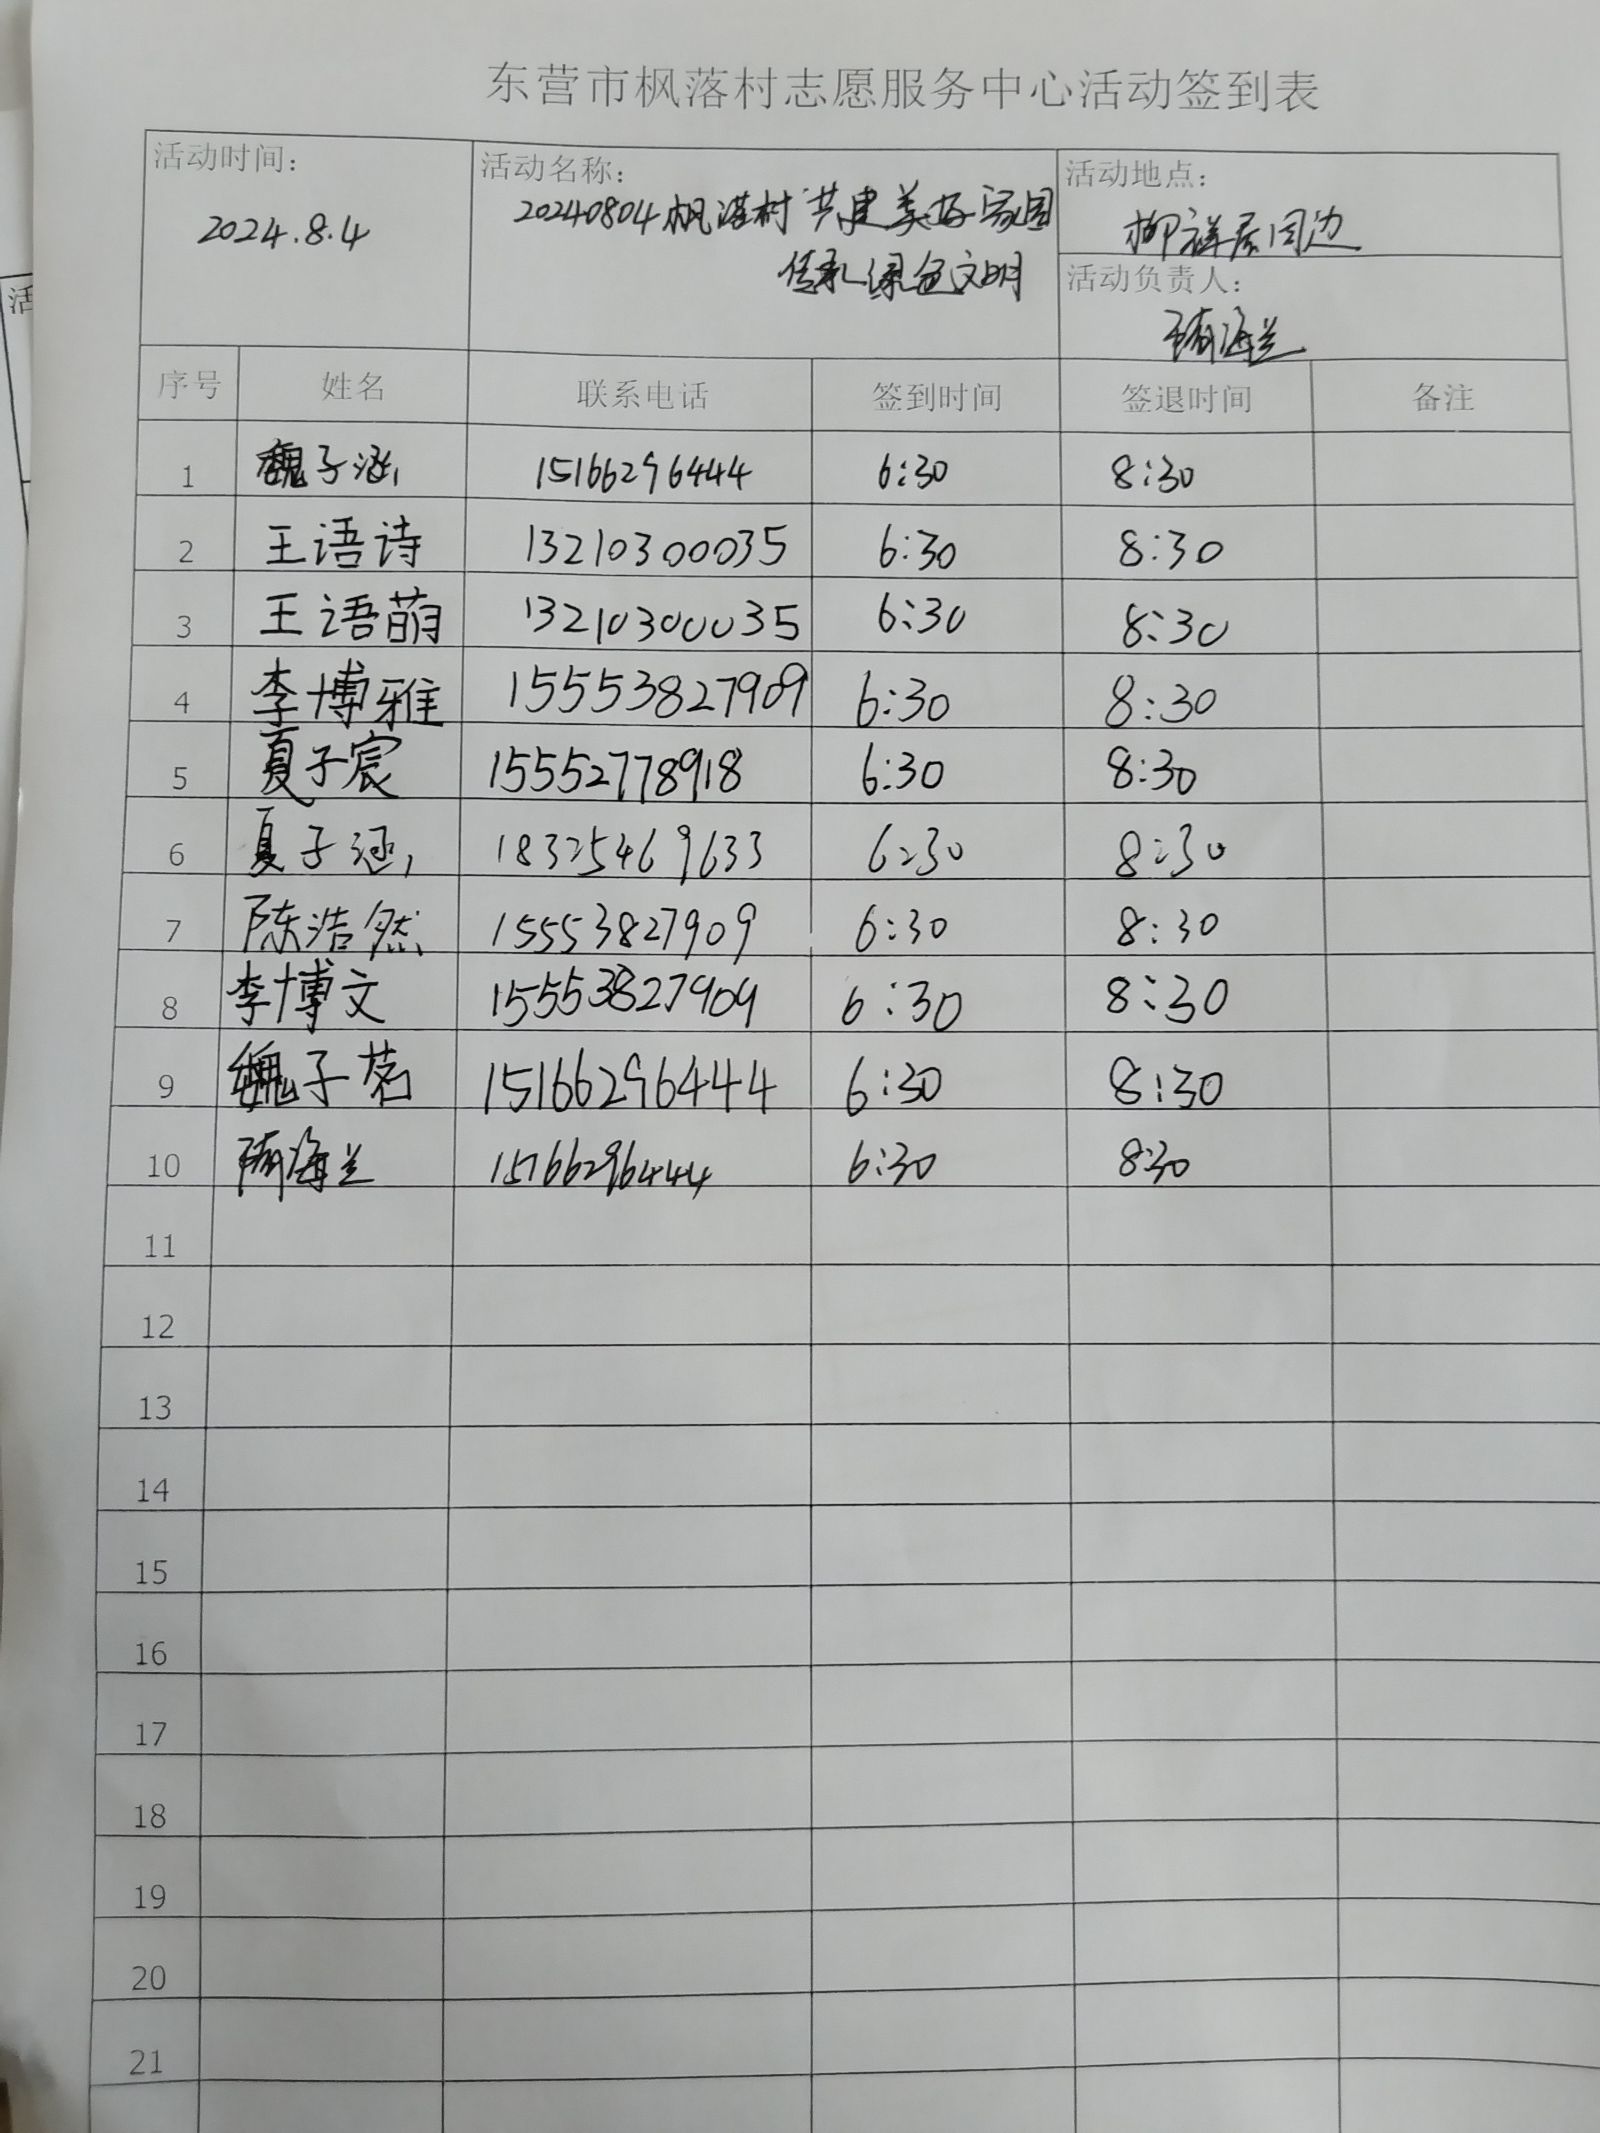 东营市枫落村志愿服务中心活动签到表
活动时间： 活动名称： 活动地点：
2024.8.4 20240804枫落村“共建美好家园 柳祥居周边
传承绿色文明
活动负责人：
隋海兰
活
序号 姓名 联系电话 签到时间 签退时间 备注
1 魏子涵 15166296444 6:30 8:30
2 王语诗 13210300035 6:30 8:30
3 王语萌 13210300035 6:30 8:30
4 李博雅 15553827909 6:30 8:30
5 夏子宸 15552778918 6:30 8:30
6 夏子涵 18325469633 6:30 8:30
7 陈浩然 15553827909 6:30 8:30
8 李博文 15553827909 6:30 8:30
9 魏子茗 15166296444 6:30 8:30
10 隋海兰 15166296444 6:30 8:30
11
12
13
14
15
16
17
18
19
20
21